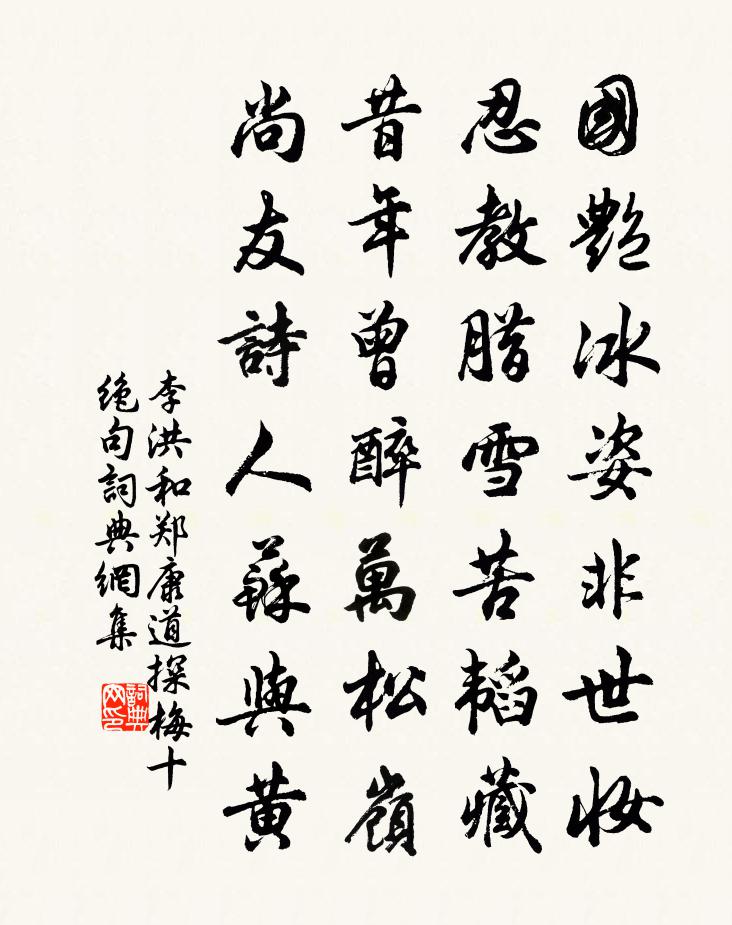 國艷冰姿非世妝
忍教腊雪苦韬藏
昔年曾醉萬松嶺
尚友詩人蘇與黃
李洪和郑康道探梅十
绝句詞典網集
詞典网印